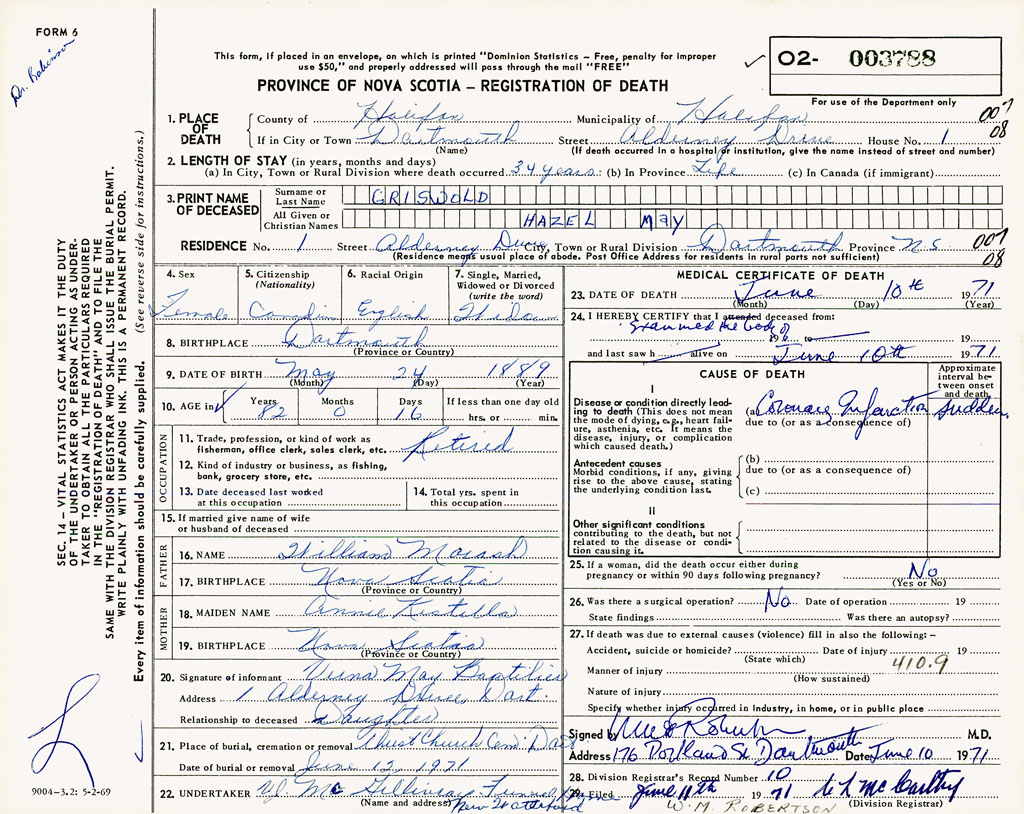 FORM 6
Dr. Robinson
This form, if placed in an envelope, on which is printed "Dominion Statistics – Free, penalty for improper
use $50," and properly addressed will pass through the mail "FREE"
✓ 02- 003788
PROVINCE OF NOVA SCOTIA – REGISTRATION OF DEATH
For use of the Department only
1. PLACE OF DEATH
County of Halifax Municipality of Halifax 007
If in City or Town Dartmouth Street Alderney Drive House No. 1 08
(Name) (If death occurred in a hospital or institution, give the name instead of street and number)
2. LENGTH OF STAY (in years, months and days)
(a) In City, Town or Rural Division where death occurred 34 years. (b) In Province Life (c) In Canada (if immigrant)
3. PRINT NAME OF DECEASED
Surname or Last Name GRISWOLD
All Given or Christian Names HAZEL MAY
RESIDENCE No. 1 Street Alderney Drive City, Town or Rural Division Dartmouth Province N.S. 007
(Residence means usual place of abode. Post Office Address for residents in rural parts not sufficient) 08
4. Sex
Female
5. Citizenship
(Nationality)
Canadian
6. Racial Origin
English
7. Single, Married,
Widowed or Divorced
(write the word)
Widow
8. BIRTHPLACE Dartmouth
(Province or Country)
9. DATE OF BIRTH May 24 1889
(Month) (Day) (Year)
10. AGE in ✓ Years 82 Months 0 Days 16 If less than one day old
hrs. or min.
OCCUPATION
11. Trade, profession, or kind of work as
fisherman, office clerk, sales clerk, etc. Retired
12. Kind of industry or business, as fishing,
bank, grocery store, etc.
13. Date deceased last worked
at this occupation
14. Total yrs. spent in
this occupation
15. If married give name of wife
or husband of deceased
FATHER
16. NAME William Mosash
17. BIRTHPLACE Nova Scotia
(Province or Country)
MOTHER
18. MAIDEN NAME Annie
19. BIRTHPLACE Nova Scotia
(Province or Country)
20. Signature of informant Verna May
Address 1 Alderney Drive, Dart.
Relationship to deceased Daughter
21. Place of burial, cremation or removal Christ Church Cem. Dart
Date of burial or removal June 12, 1971
22. UNDERTAKER Mc Gillivray Funeral
(Name and address)
MEDICAL CERTIFICATE OF DEATH
23. DATE OF DEATH June 10th 1971
(Month) (Day) (Year)
24. I HEREBY CERTIFY that I attended deceased from:
Examined the body of
196 to
and last saw h alive on June 10th 1971
CAUSE OF DEATH
Approximate
interval be-
tween onset
and death
I
Disease or condition directly lead-
ing to death (This does not mean
the mode of dying, e.g., heart fail-
ure, asthenia, etc. It means the
disease, injury, or complication
which caused death.)
(a) Coronary Infarction sudden
due to (or as a consequence of)
Antecedent causes
Morbid conditions, if any, giving
rise to the above cause, stating
the underlying condition last.
(b)
due to (or as a consequence of)
(c)
II
Other significant conditions
contributing to the death, but not
related to the disease or condi-
tion causing it.
25. If a woman, did the death occur either during
pregnancy or within 90 days following pregnancy? No
(Yes or No)
26. Was there a surgical operation? No Date of operation 19
State findings Was there an autopsy?
27. If death was due to external causes (violence) fill in also the following: –
Accident, suicide or homicide? Date of injury 19
(State which) 410.9
Manner of injury
(How sustained)
Nature of injury
Specify whether injury occurred in industry, in home, or in public place
Signed by M.D.
Address 176 Portland St. Dartmouth Date June 10 1971
28. Division Registrar's Record Number 10
29. Filed June 11th 1971 McCarthy
(Division Registrar)
New Waterford
W. M. ROBERTSON
SEC. 14 – VITAL STATISTICS ACT MAKES IT THE DUTY
OF THE UNDERTAKER OR PERSON ACTING AS UNDER-
TAKER TO OBTAIN ALL THE PARTICULARS REQUIRED
IN THE "REGISTRATION OF DEATH" AND TO FILE THE
SAME WITH THE DIVISION REGISTRAR WHO SHALL ISSUE THE BURIAL PERMIT.
WRITE PLAINLY WITH UNFADING INK. THIS IS A PERMANENT RECORD.
Every item of information should be carefully supplied. (See reverse side for instructions.)
9004-3.2: 5-2-69